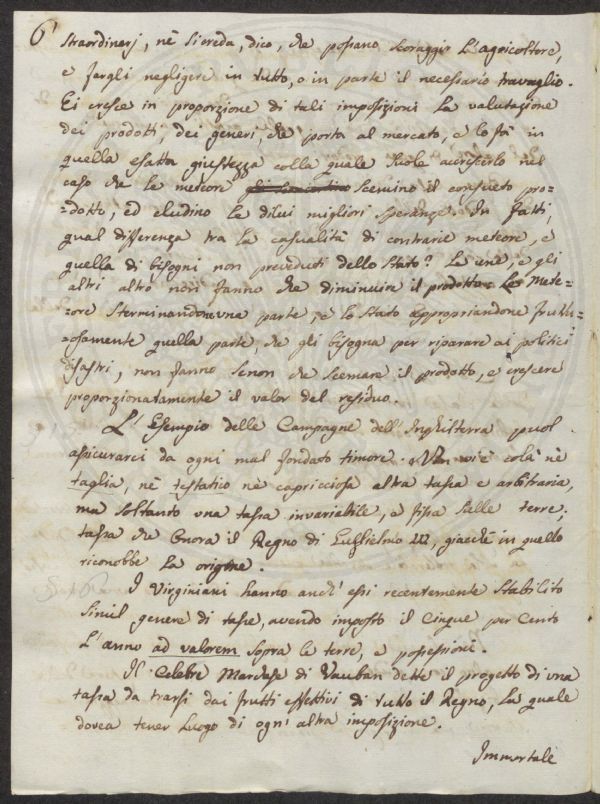 6
straordinerj, nè si creda, dico, che possano scoraggir L'agricoltore,
e fargli negligere in tutto, o in parte il necessario travaglio.
Ei cresce in proporzione di tali imposizioni la valutazione
dei prodotti, dei generi, che porta al mercato, e lo fà in
quella esatta giustezza colla quale suole accrescerlo nel
caso che le meteore scemino il consueto pro=
=dotto, ed eludino le dilui migliori speranze. In fatti,
qual differenza tra la casualità di contrarie meteore, e
quella di bisogni non preveduti dello stato? Le une, e gli
altri altro non fanno che diminuire il prodotto. Le Mete=
=ore sterminandone una parte, e lo stato appropriandone frutt
=osamente quella parte, che gli bisogna per riparare ai politici
disastri, non fanno senon che scemare il prodotto, e crescere
proporzionatamente il valor del residuo.
L'Esempio delle Campagne dell'Inghilterra puol
assicurarci da ogni mal fondato timore. Non vi è colà nè
taglia, nè testatio nè capricciosa altra tassa e arbitraria,
ma soltanto una tassa invariabile, e fissa sulle terre;
tassa che onora il Regno di Guglielmo III, giacchè in quello
riconobbe la origine.
I Virginiani hanno anch'essi recentemente stabilito
simil genere di tasse, avendo imposto il Cinque per Cento
L'anno ad valorem sopra le terre, e possessioni.
Il Celebre Marchese di Vauban dette il progetto di una
tassa da trarsi dai frutti effettivi di tutto il Regno, la quale
dovea tener luogo di ogni altra imposizione.
Immortale